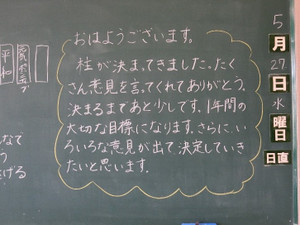 おはようございます。
柱が決まってきました。たく
さん意見を言ってくれてありがとう。
決まるまであと少しです。1年間の
大切な目標になります。さらに、い
ろいろな意見が出て決定していき
たいと思います。
5
月
27
日
水
曜日
日直
平和
なて
う
げる